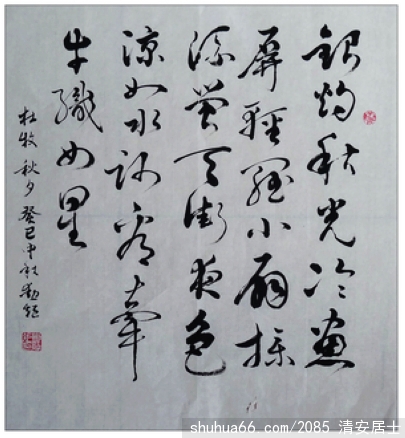 銀燭秋光冷畫
屏輕羅小扇撲
流螢天街夜色
涼如水臥看牽
牛織女星
杜牧 秋夕 癸巳中秋
shuhua66.com/2085 清安居士